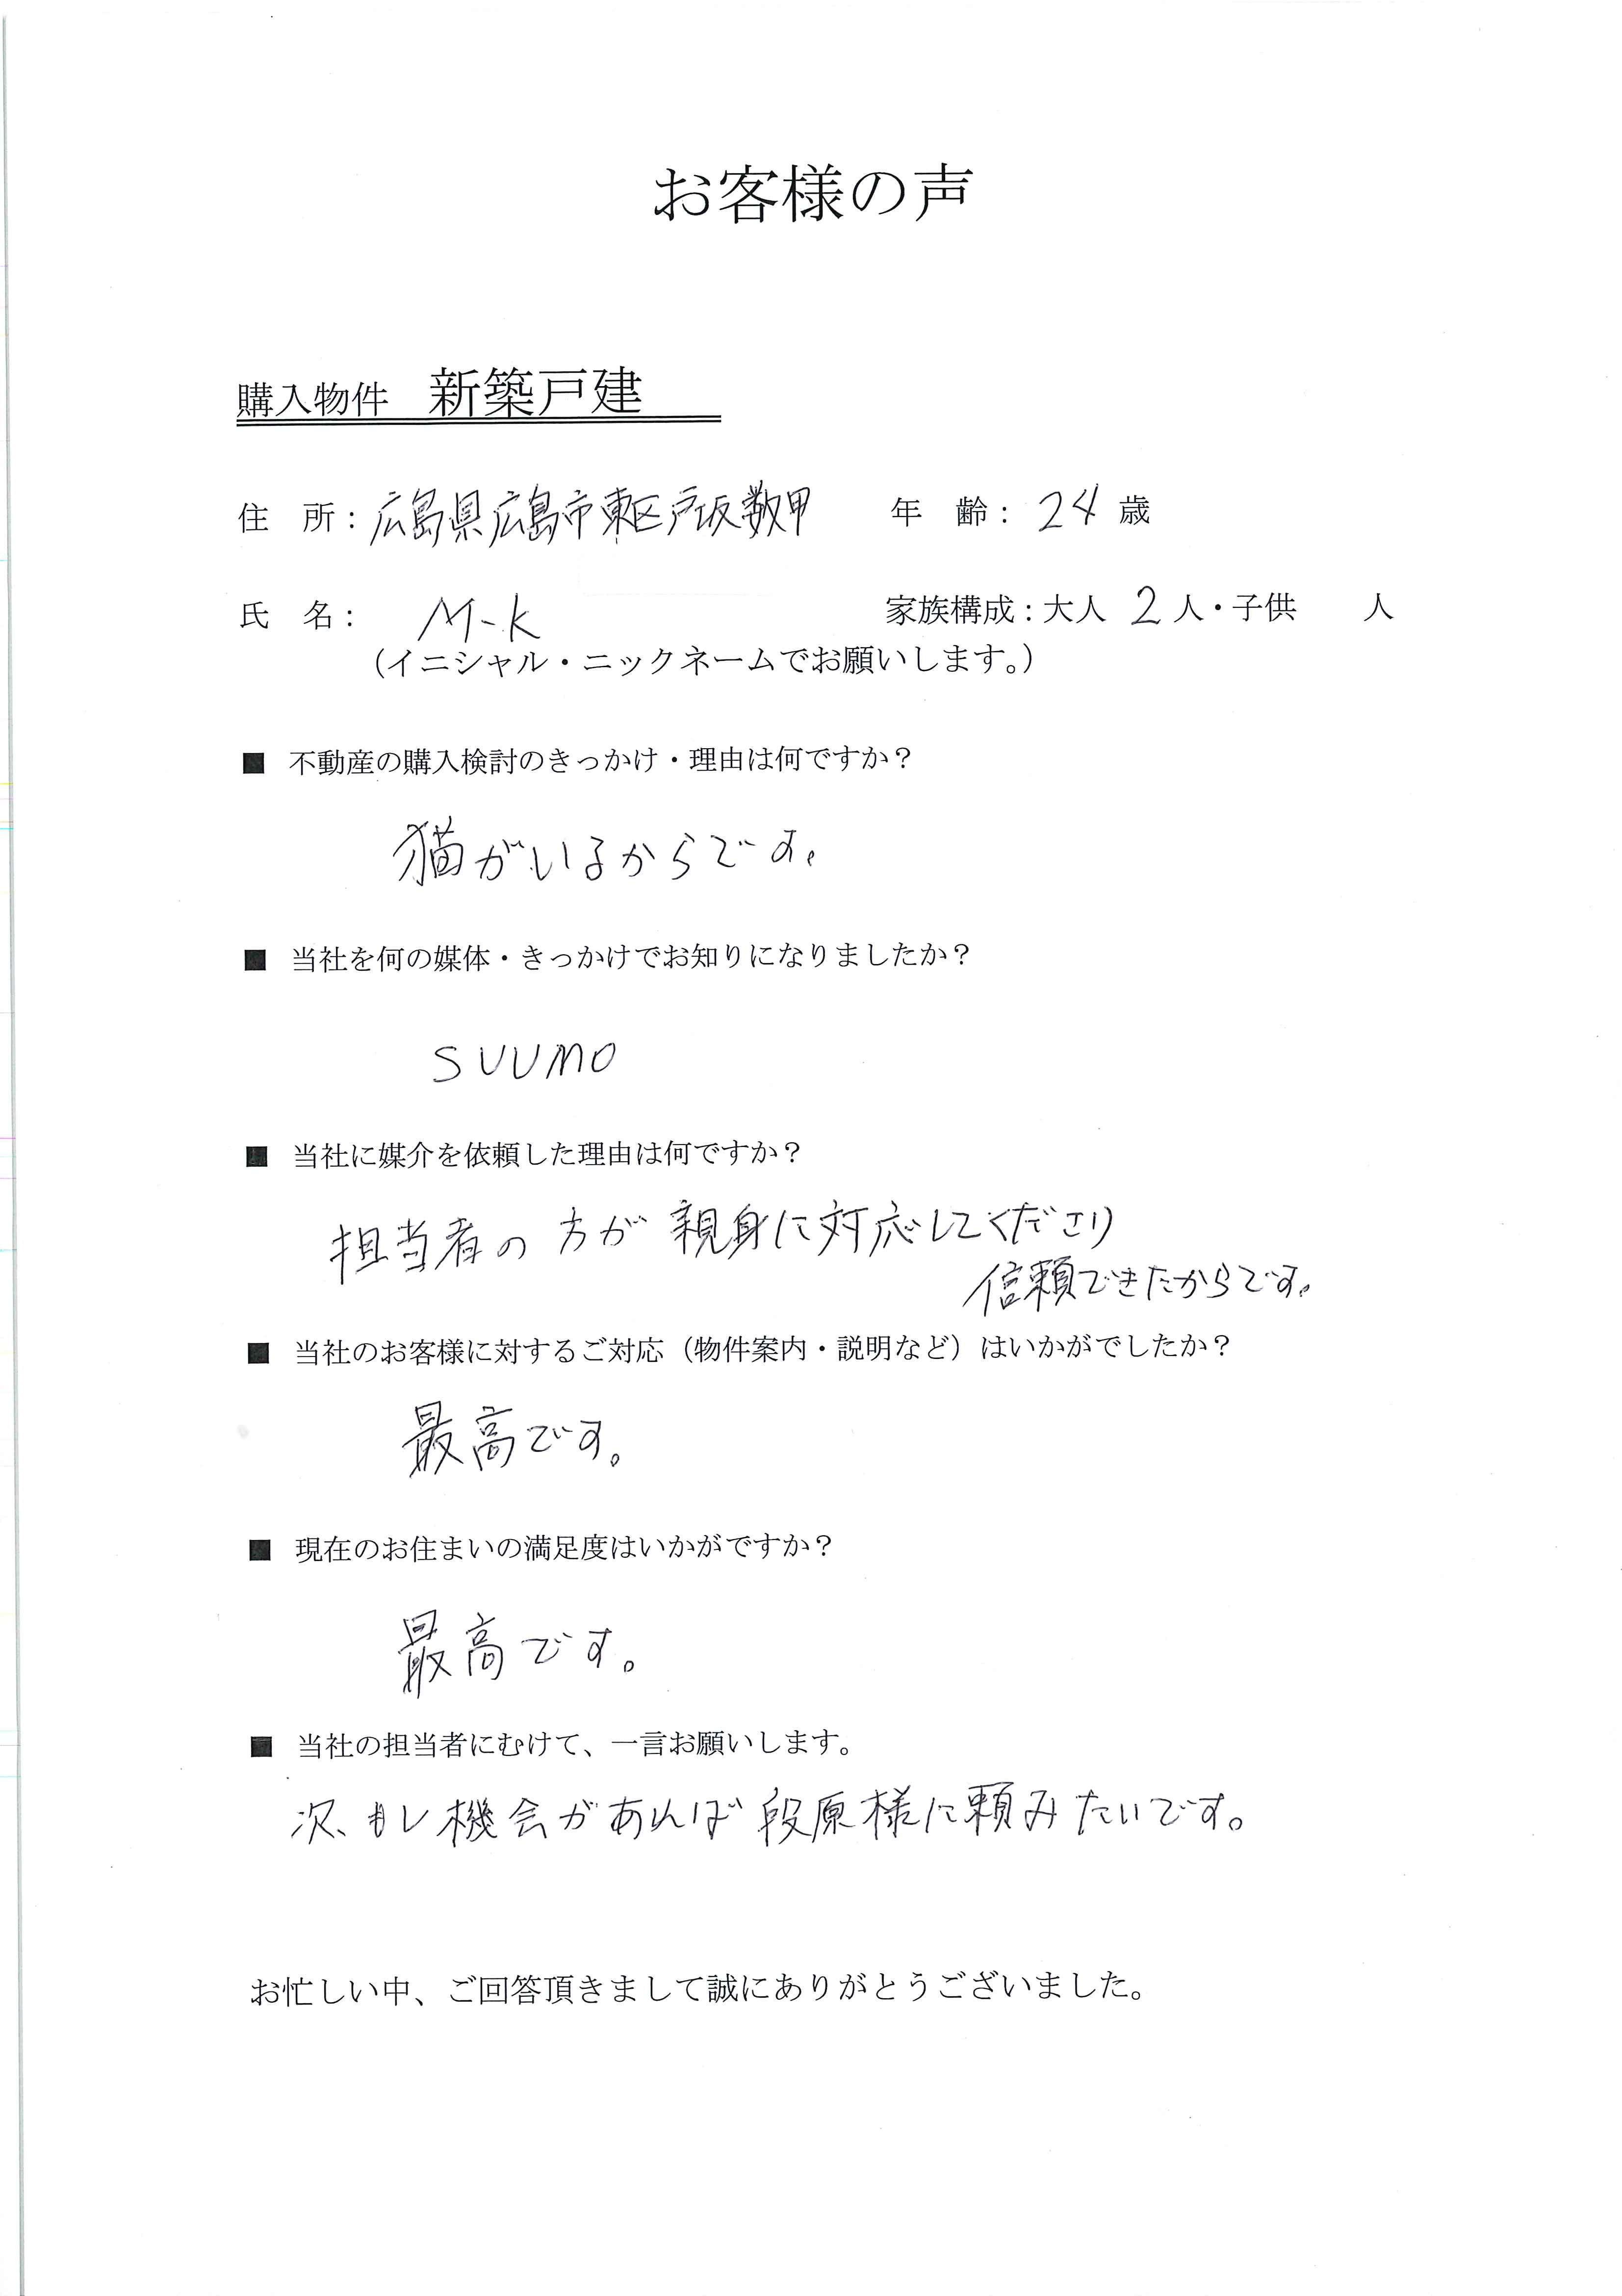 お客様の声
購入物件 新築戸建
住 所：広島県広島市東区戸坂数甲 年 齢：24歳
氏 名： M-k 家族構成：大人 2人・子供 人
（イニシャル・ニックネームでお願いします。）
■ 不動産の購入検討のきっかけ・理由は何ですか？
猫がいるからです。
■ 当社を何の媒体・きっかけでお知りになりましたか？
SUUMO
■ 当社に媒介を依頼した理由は何ですか？
担当者の方が親身に対応してくださり
信頼できたからです。
■ 当社のお客様に対するご対応（物件案内・説明など）はいかがでしたか？
最高です。
■ 現在のお住まいの満足度はいかがですか？
最高です。
■ 当社の担当者にむけて、一言お願いします。
次、もし機会があれば段原様に頼みたいです。
お忙しい中、ご回答頂きまして誠にありがとうございました。